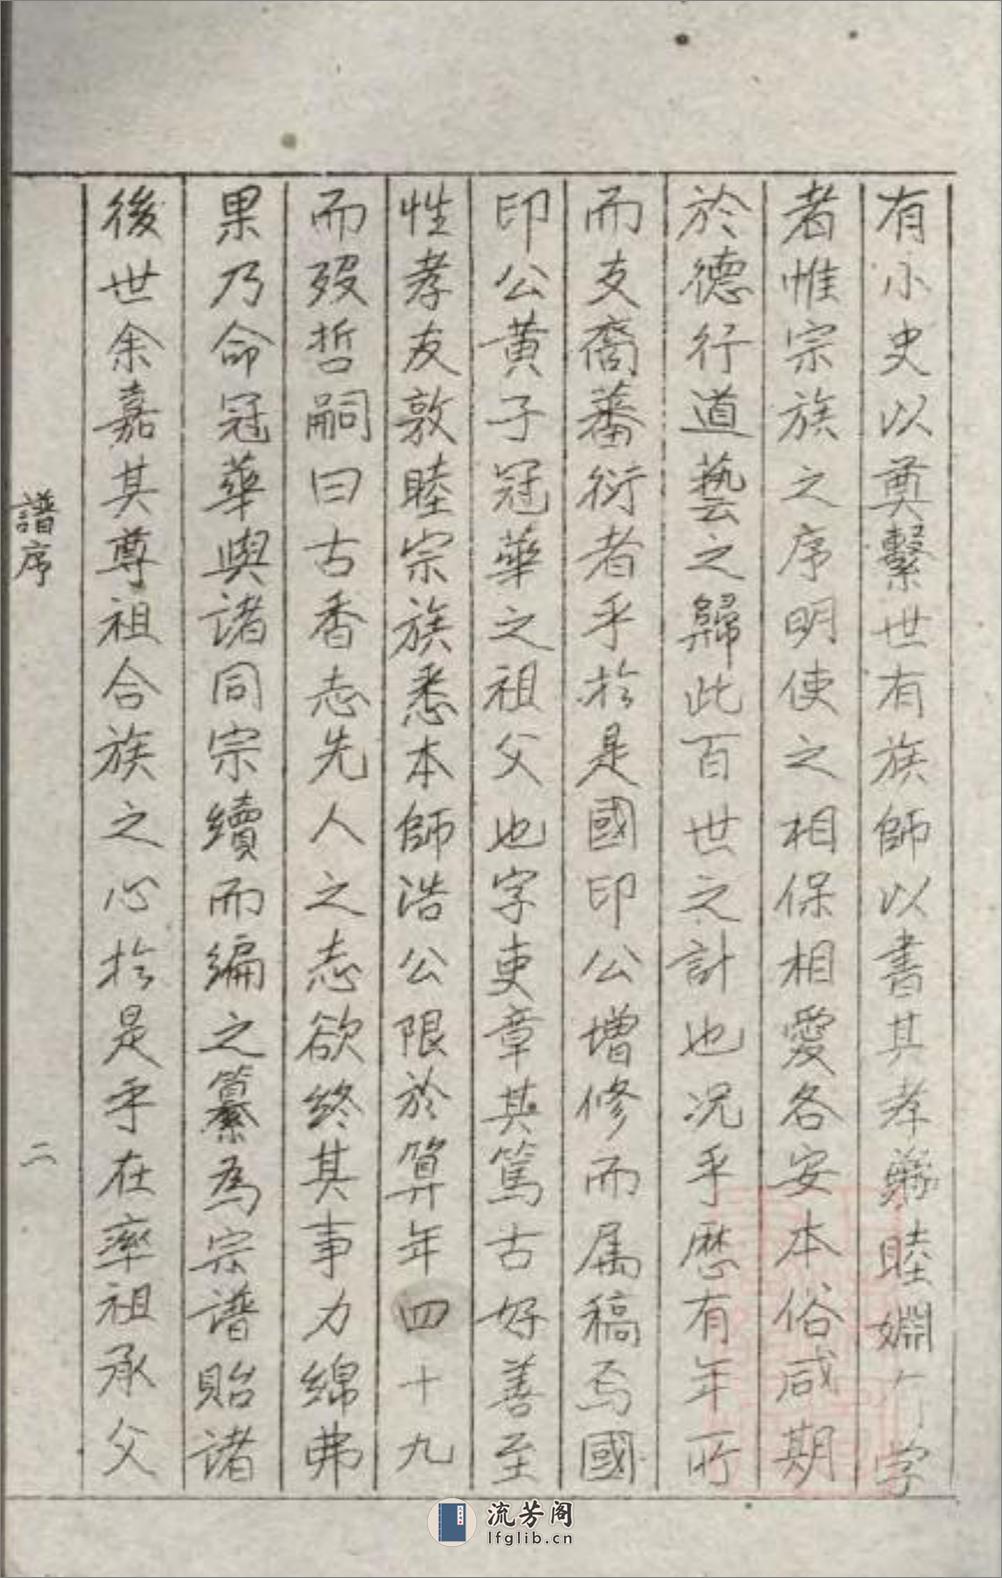 有小史以奠繫世有族師以書其孝弟睦婣行学
者惟宗族之序明使之相保相愛各安本俗咸期
於德行道藝之歸此百世之計也况乎歷有年所
而支裔蕃衍者乎於是國印公增修而属稿焉國
印公黃子冠華之祖父也字吏章其篤古好善至
性孝友敦睦宗族悉本師浩公限於算年四十九
而歿哲嗣曰古香志先人之志欲終其事力綿弗
果乃命冠華與諸同宗續而編之纂為宗譜貽諸
後世余嘉其尊祖合族之心於是乎在率祖承父
譜序
二
流芳阁
lfglib.cn